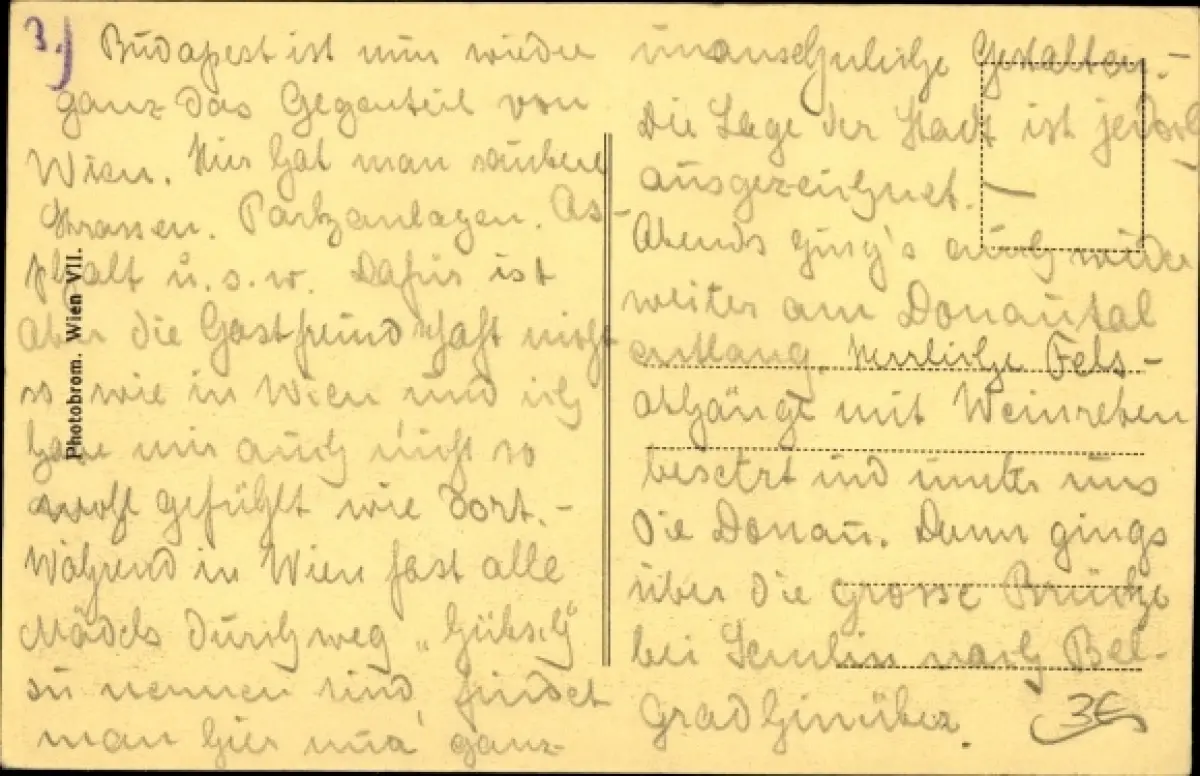 3.)
Budapest ist nun wieder
ganz das Gegenteil von
Wien. Hier hat man saubere
Strassen. Parkanlagen. As-
phalt u. s. w. Dafür ist
aber die Gastfreundschaft nicht
so wie in Wien und ich
habe mir auch nicht so
wohl gefühlt wie dort. -
Während in Wien fast alle
Mädels durchweg „hübsch“
zu nennen sind, findet
man hier nur ganz
unansehnliche Gestalten. -
Die Lage der Stadt ist jedoch
ausgezeichnet. —
Abends ging's auch wieder
weiter am Donautal
entlang. Herrliche Fels-
abhänge mit Weinreben
besetzt und unter uns
die Donau. Dann gings
über die grosse Brücke
bei Semlin nach Bel-
grad hinüber.
3€
Photobrom. Wien VII.